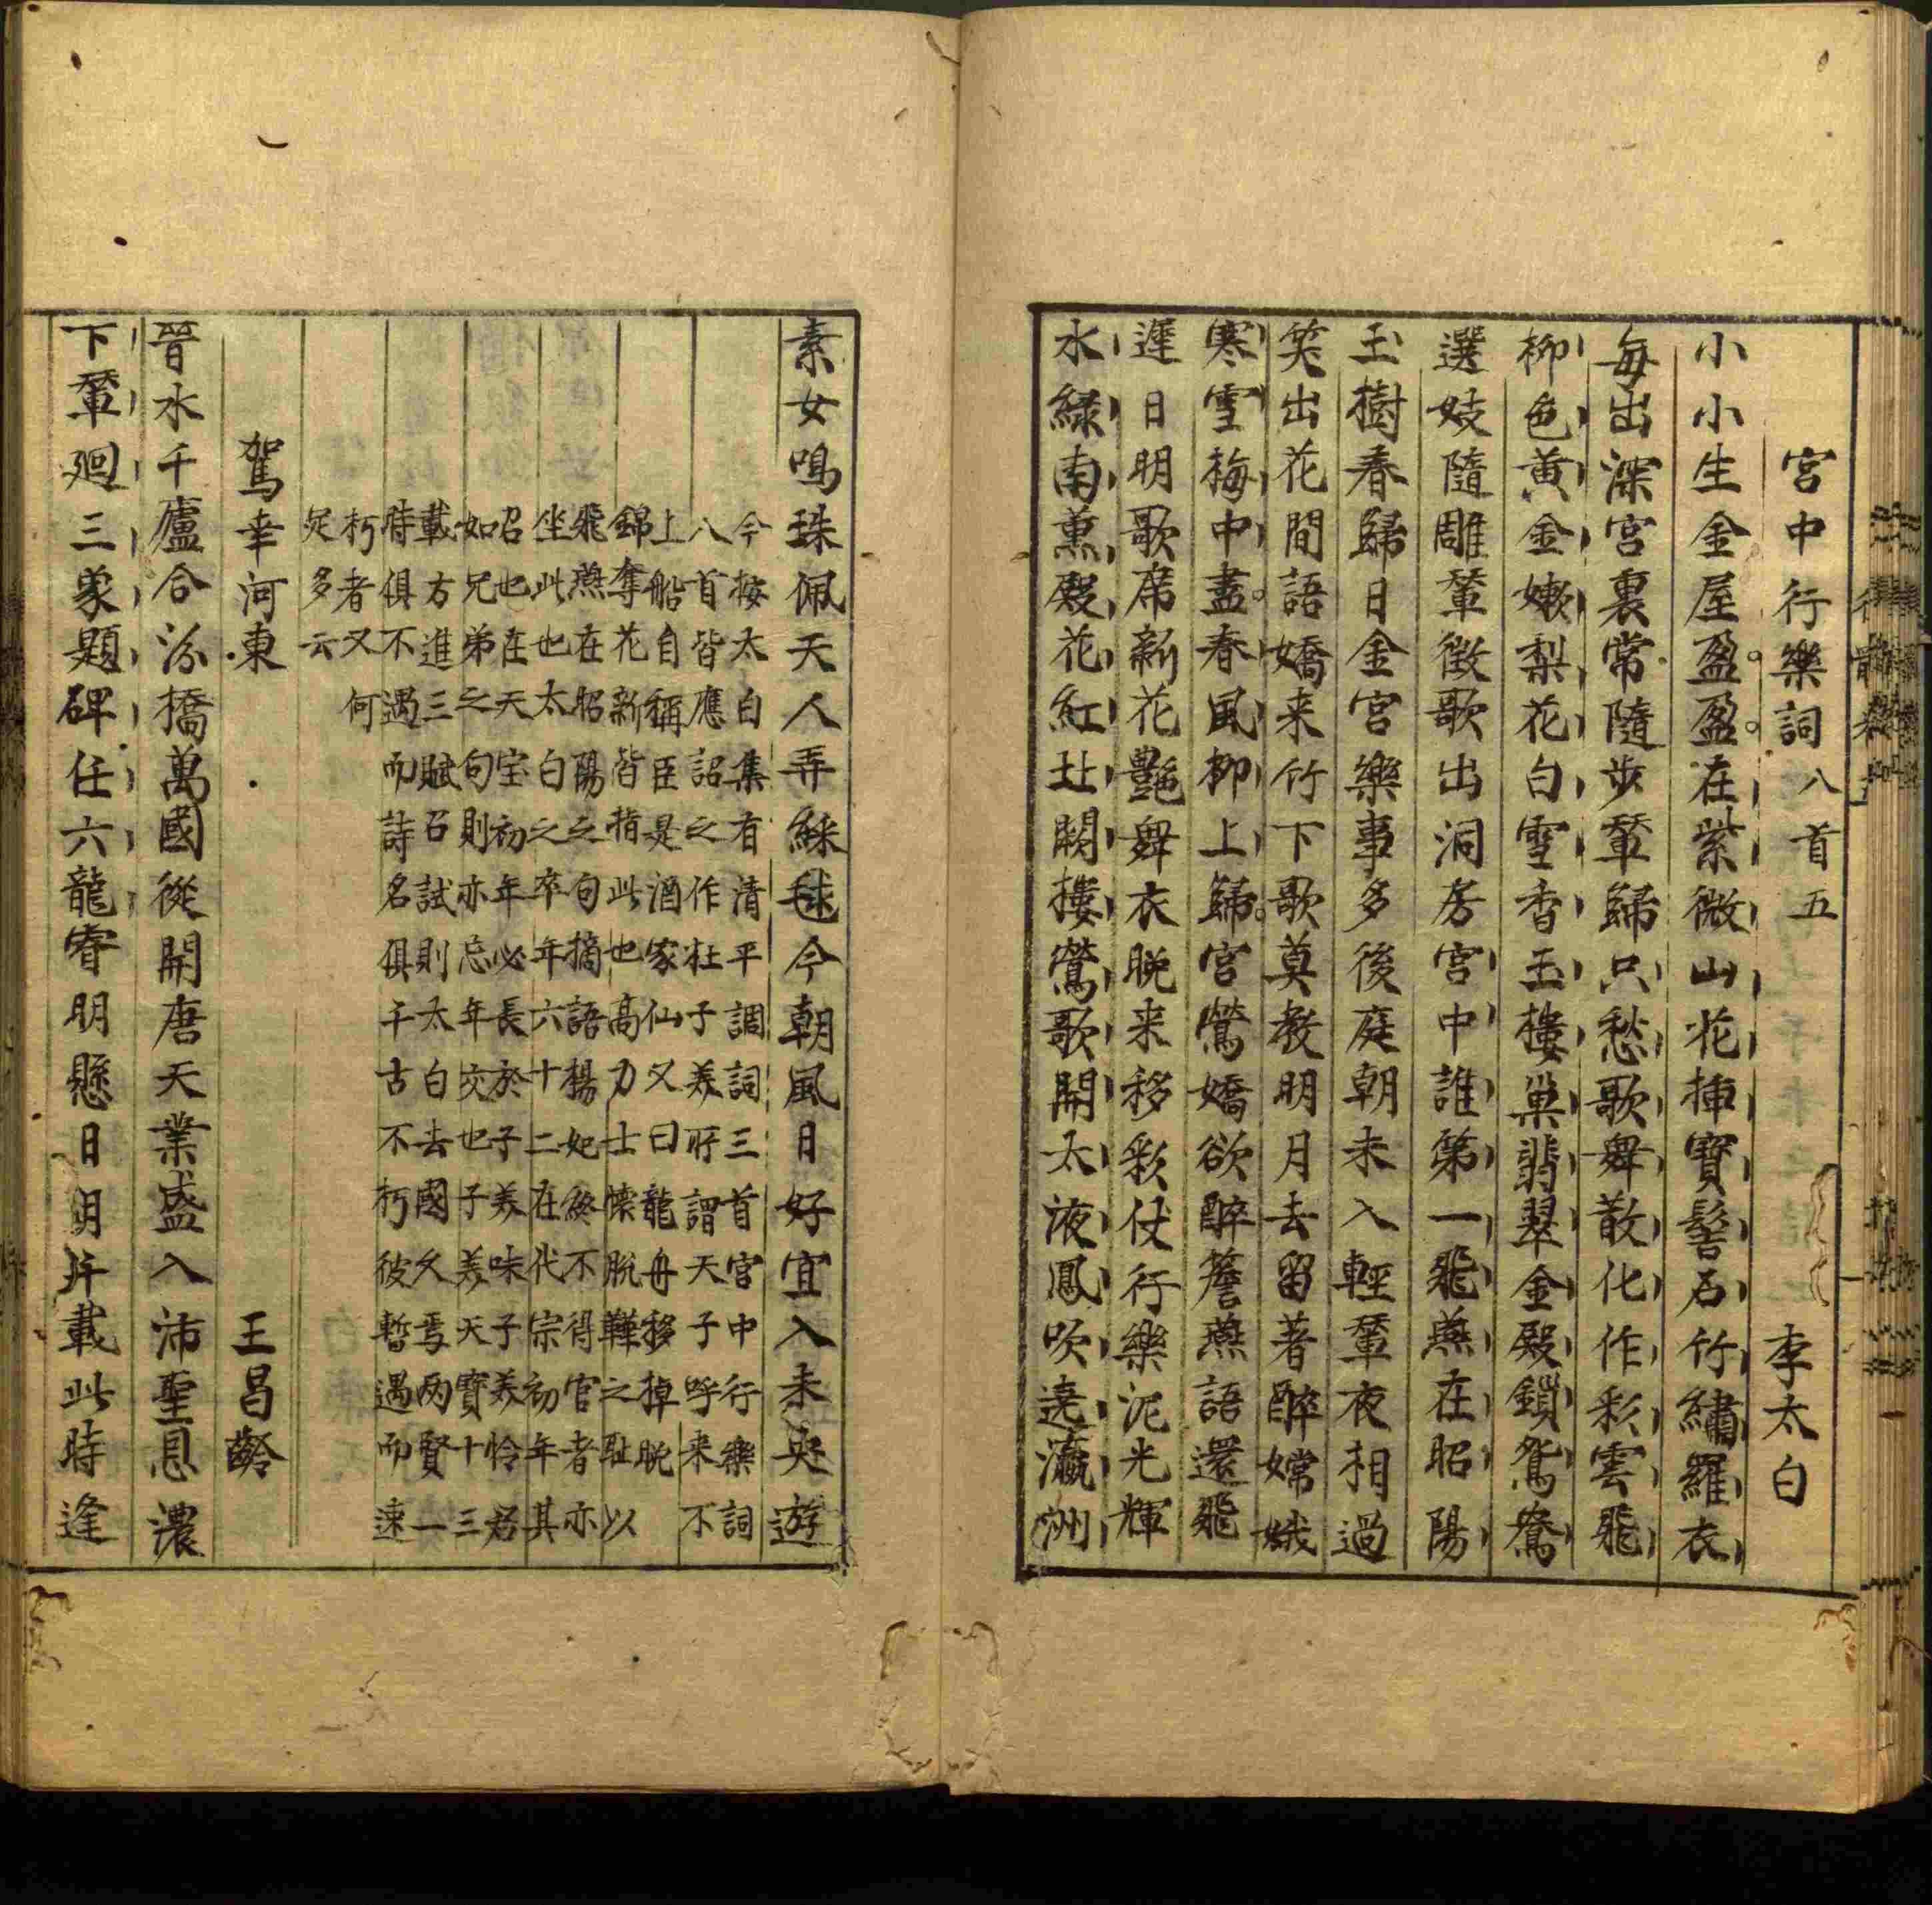 宮中行樂詞 八首五 李太白
小小生金屋盈盈在紫微山花揷寶髻石竹繡羅衣
每出深宮裏常隨步輦歸只愁歌舞散化作彩雲飛
柳色黃金嫩梨花白雪香玉樓巢翡翠金殿鎖鴛鴦
選妓隨雕輦徵歌出洞房宮中誰第一飛燕在昭陽
玉樹春歸日金宮樂事多後庭朝未入輕輦夜相過
笑出花間語嬌来竹下歌莫教明月去留著醉嫦娥
寒雪梅中盡春風柳上歸宮鶯嬌欲醉簷燕語還飛
遲日明歌席新花艶舞衣晚来移彩仗行樂泥光輝
水綠南薰殿花紅北闕樓鶯歌開太液鳳吹遶瀛洲
素女鳴珠佩天人弄綵毬今朝風日好宜入未央遊
今按太白集有清平調詞三首宮中行樂詞
八首皆應詔之作杜子美所謂天子呼来不
上船自稱臣是酒家仙又曰龍舟移棹晚
錦奪花新皆指此也高力士懷脫鞾之耻以
飛燕在昭陽之句摘語楊妃終不得官者亦
坐此也太白之卒年六十二在代宗初年其
召也在天宝初年必長於子美味子美怜君
如兄弟之句則亦忘年交也子美天寶十三
載方進三賦召試則太白去國久焉两賢一
時俱不遇而詩名俱千古不朽彼暫遇而速
朽者又何
足多云
駕幸河東 王昌齡
晉水千廬合汾橋萬國從開唐天業盛入沛聖恩濃
下輦廻三象題碑任六龍睿明懸日月幷載此時逢